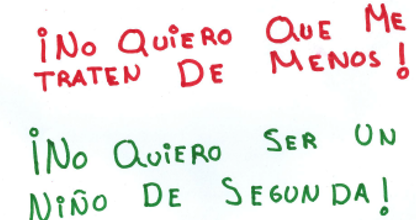 ¡No QUiERO QUE ME
TRATEN DE MENOS!
¡No QUiERO SER UN
NiÑO DE SEGUNDA!